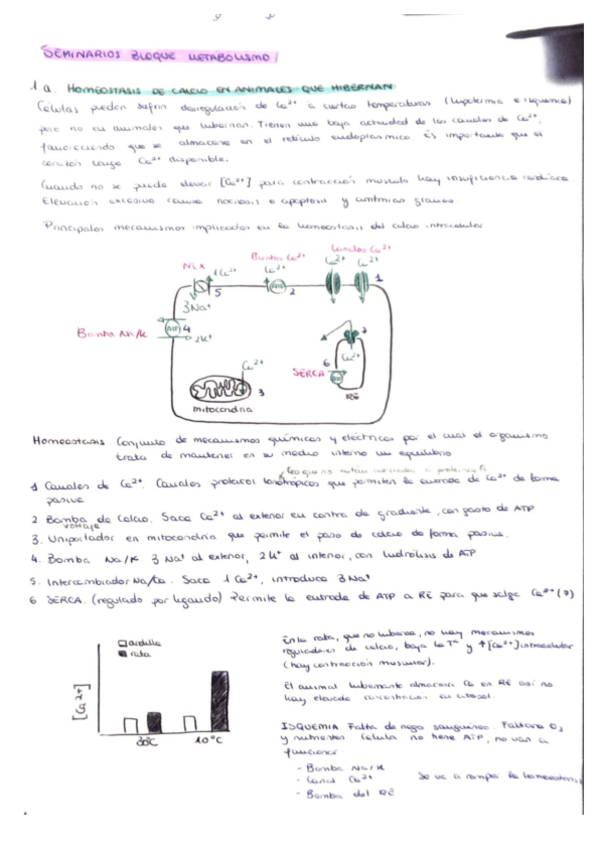 SEMINARIOS BLOQUE METABOLISMO
1a. HOMEOSTASIS DE CALCIO EN ANIMALES QUE HIBERNAN
Células pueden sufrir desregulación de Ca2+ a ciertas temperaturas (hipotermia e isquemia)
pero no en animales que hibernan. Tienen una baja actividad de los canales de Ca2+,
favoreciendo que se almacene en el retículo endoplasmico. Es importante que el
corazón tenga Ca2+ disponible.
Cuando no se puede elevar [Ca2+] para contracción muscular hay insuficiencia cardíaca
Elevación excesiva causa necrosis o apoptosis y arritmias graves
Principales mecanismos implicados en la homeostasis del calcio intracelular
Canales Ca2+
Bomba Ca2+
NCX
1Ca2+
Ca2+
Ca2+
Ca2+
5
ATP
2
1
3Na+
Bomba Na/K
ATP
4
2K+
Ca2+
3
mitocondria
7
Ca2+
6
SERCA
RE
Homeostasis Conjunto de mecanismos químicos y eléctricos por el cual el organismo
trata de mantener en su medio interno un equilibrio
1 Canales de Ca2+. Canales proteicos ionotrópicos que permiten la entrada de Ca2+ de forma
pasiva
2 Bomba de calcio. Saca Ca2+ al exterior en contra de gradiente, con gasto de ATP
voltaje
3. Uniportador en mitocondria que permite el paso de calcio de forma pasiva.
4. Bomba Na/K 3 Na+ al exterior, 2K+ al interior, con hidrólisis de ATP
5. Intercambiador Na/Ca. Saca 1 Ca2+, introduce 3 Na+
6 SERCA. (regulado por ligando) Permite la entrada de ATP a RE para que salga Ca2+ (7)
ardilla
rata
[Ca2+]
30°C
10°C
En la rata, que no hiberna, no hay mecanismos
reguladores de calcio, baja la Tª y ↑[Ca2+] intracelular
(hay contracción muscular).
El animal hibernante almacena Ca en RE así no
hay elevada concentración en citosol.
ISQUEMIA Falta de riego sanguíneo. Faltan O2
y nutrientes Célula no tiene ATP, no van a
funcionar
- Bomba Na/K
- Canal Ca2+
- Bomba del RE
Se va a romper la homeostasis